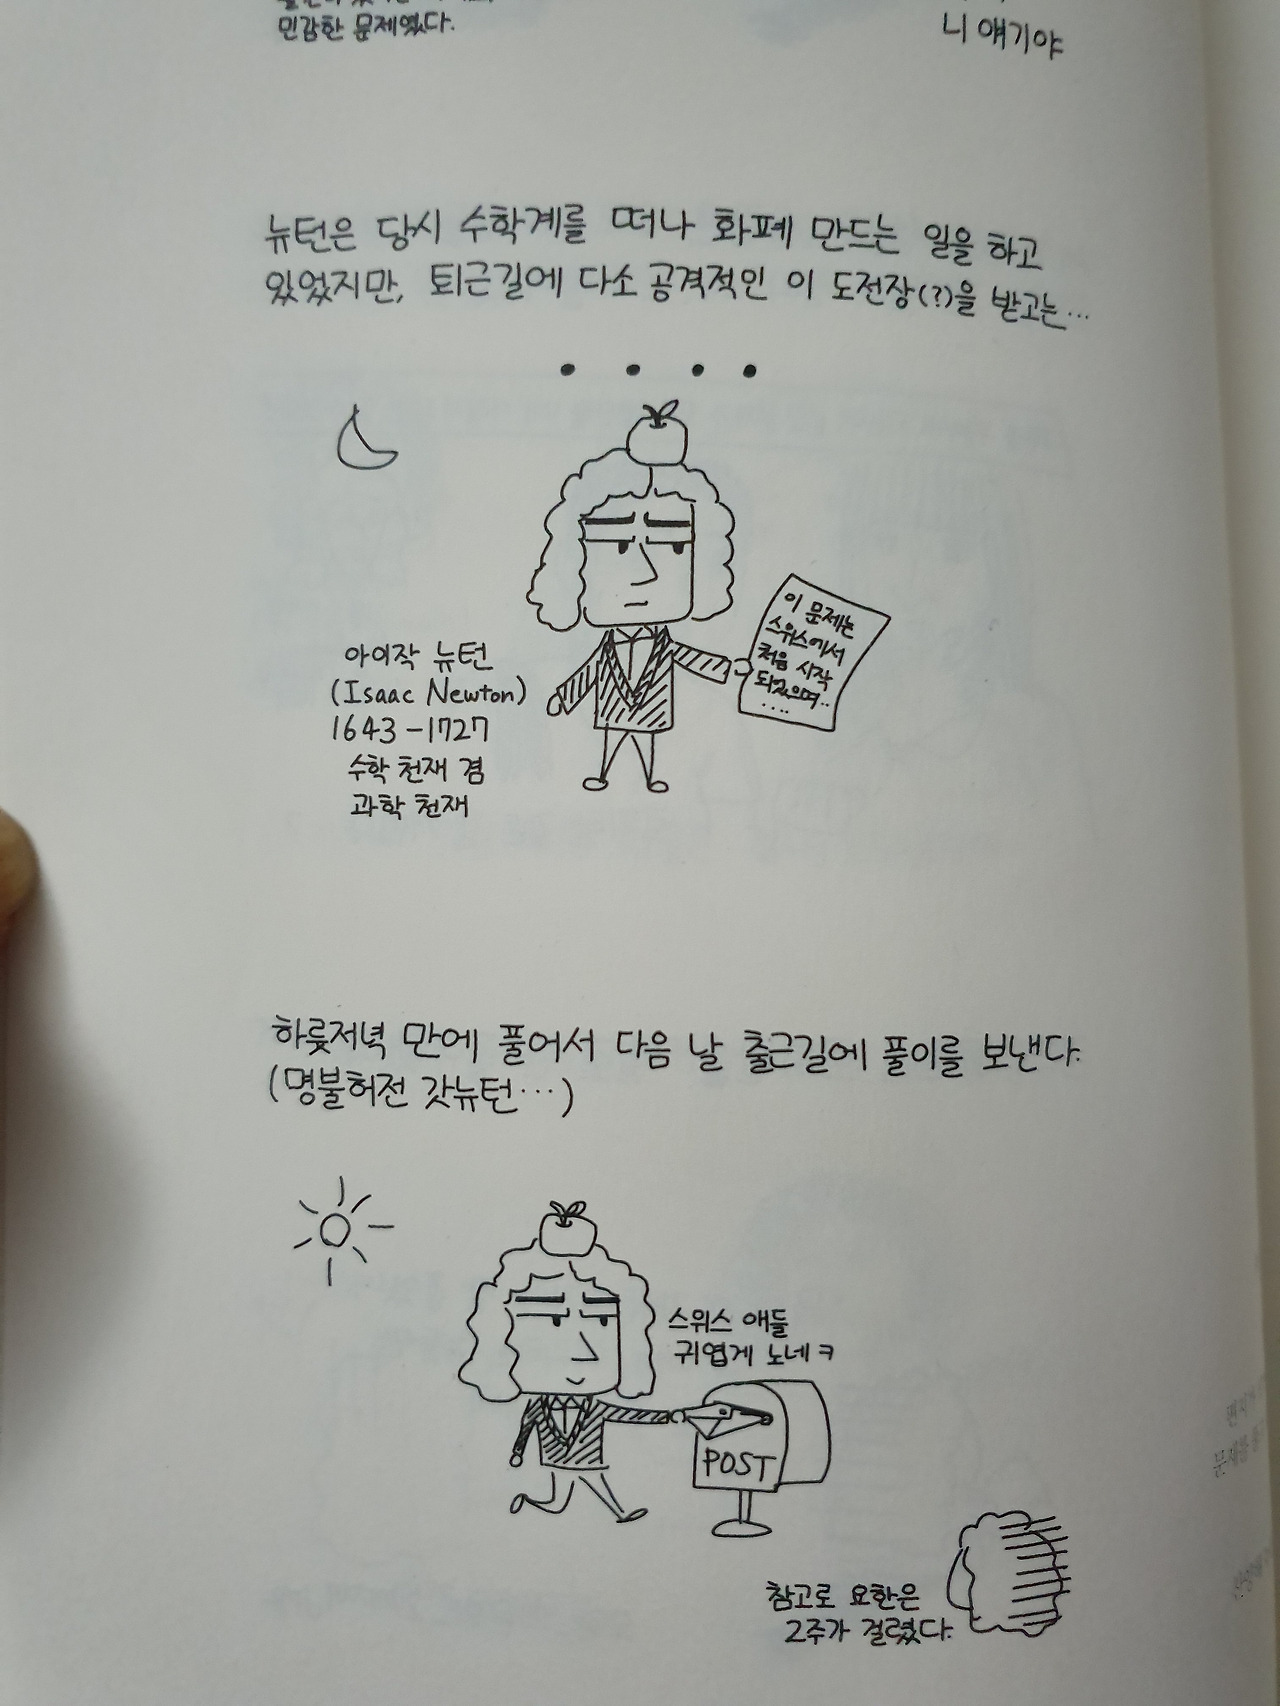 민감한 문제였다.
니 얘기야
뉴턴은 당시 수학계를 떠나 화폐 만드는 일을 하고
있었지만, 퇴근길에 다소 공격적인 이 도전장(?)을 받고는…
이 문제는
스위스에서
처음 시작
되었으며..
....
아이작 뉴턴
(Isaac Newton)
1643-1727
수학 천재 겸
과학 천재
하룻저녁 만에 풀어서 다음 날 출근길에 풀이를 보낸다.
(명불허전 갓뉴턴…)
스위스 애들
귀엽게 노네ㅋ
POST
참고로 요한은
2주가 걸렸다.